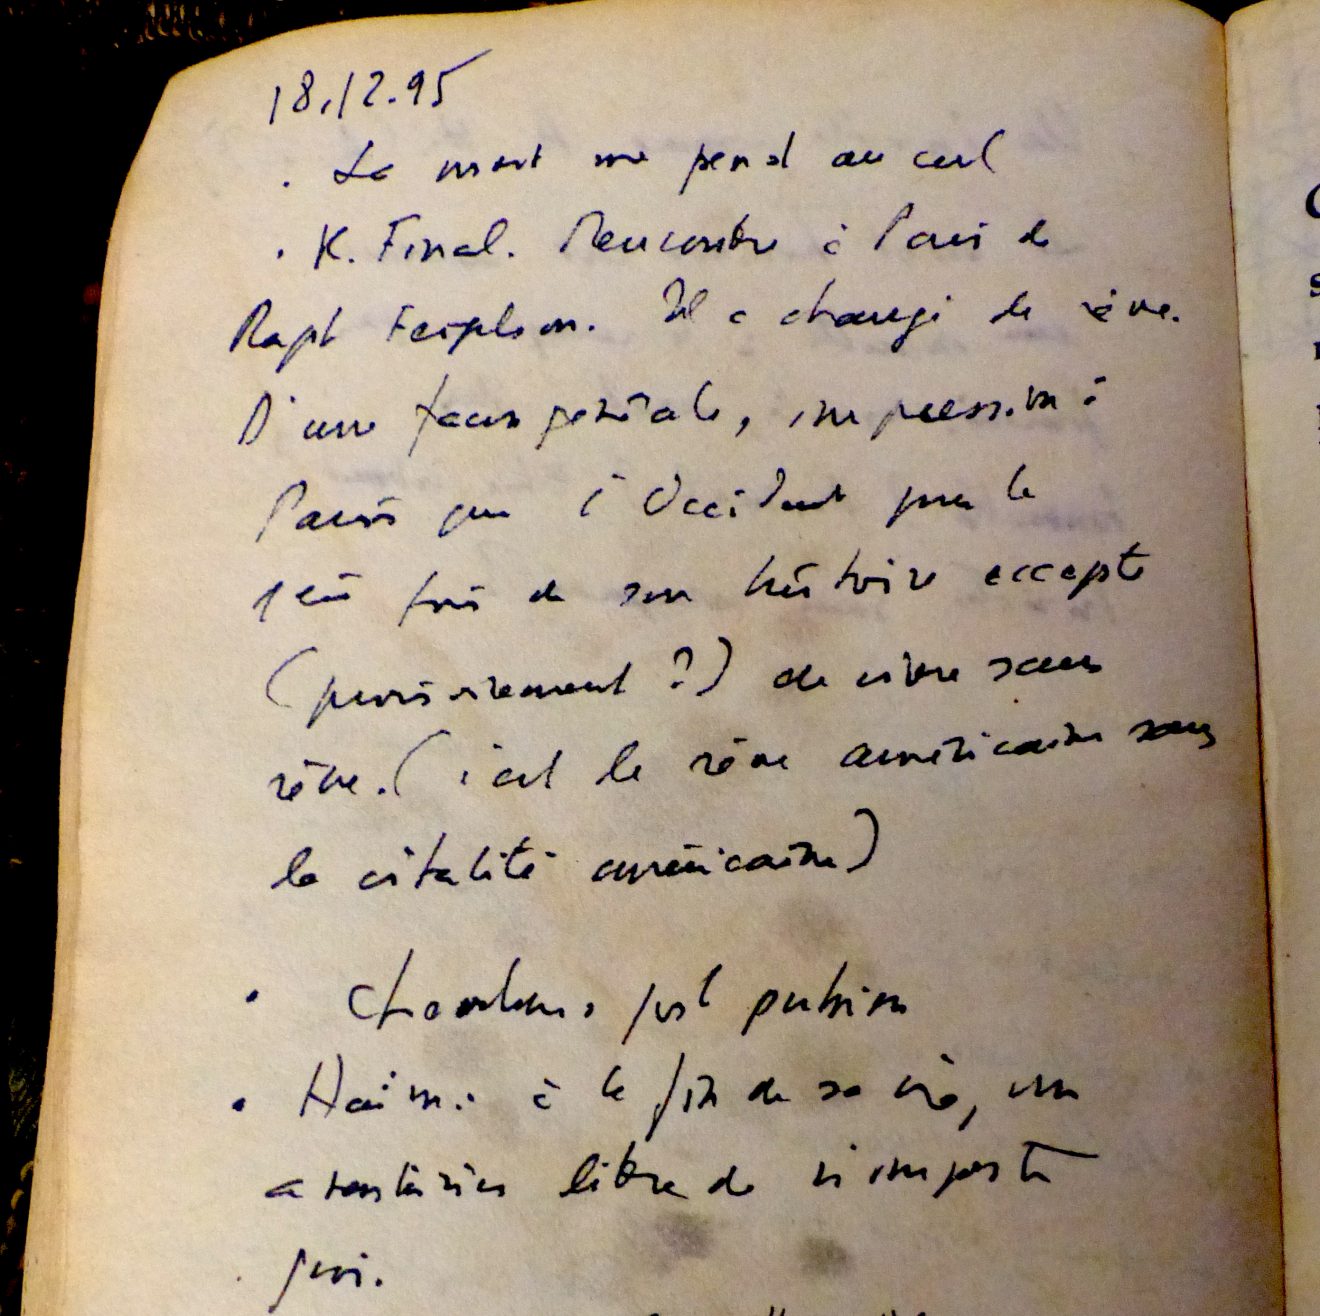 18.12.95
. La mort me pend au cul
. K. Final. Rencontre à Paris de
Raph. Il a changé de rêve.
D'une façon générale, impression à
Paris que l'Occident pour la
1ère fois de son histoire accepte
(provisoirement ?) de vivre sans
rêve. ( ic'est le rêve américain sans
la vitalité américaine)
.
. Haïm : à la fin de sa vie, un
aventurier libre de n'importe
quoi.